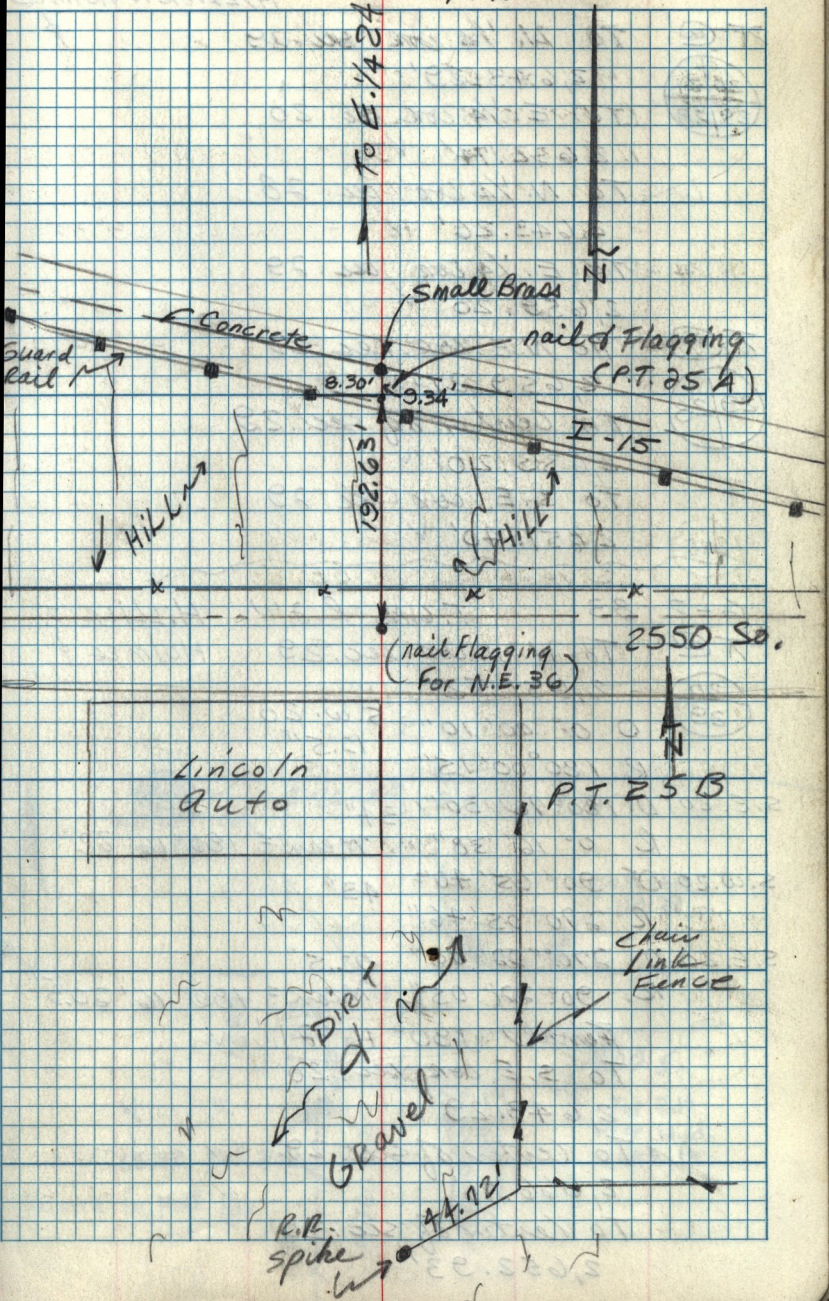 To E. 1/4 24
N
Small Brass
Concrete
nail & Flagging
(P.T. 25 A)
Guard
Rail
8.30'
9.34'
I-15
192.63'
HILL
HILL
2550 So.
(nail Flagging
For N.E. 36)
N
Lincoln
Auto
P.T. 25 B
Chain
Link
Fence
DIRT
&
Gravel
44.72'
R.R.
Spike